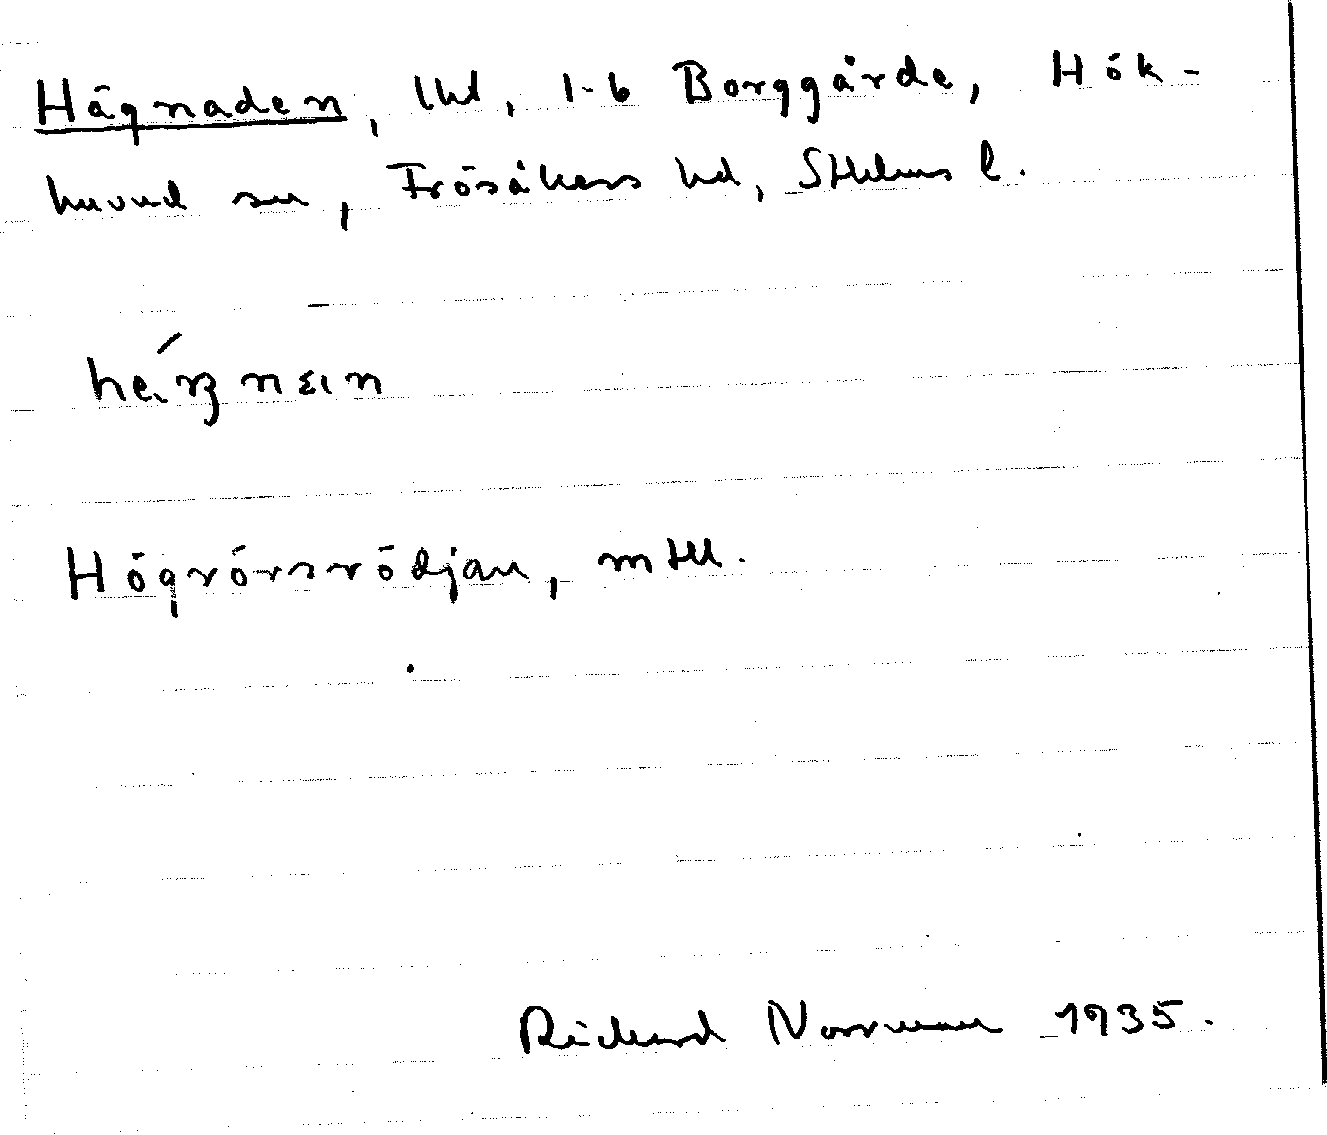 Hägnaden, lhd, 1-6 Borggårde, Hök-
huvud sn, Frösåkers hd, Sthlms l.
Högrörsrödjan, mtll.
Richard Norrman 1935.